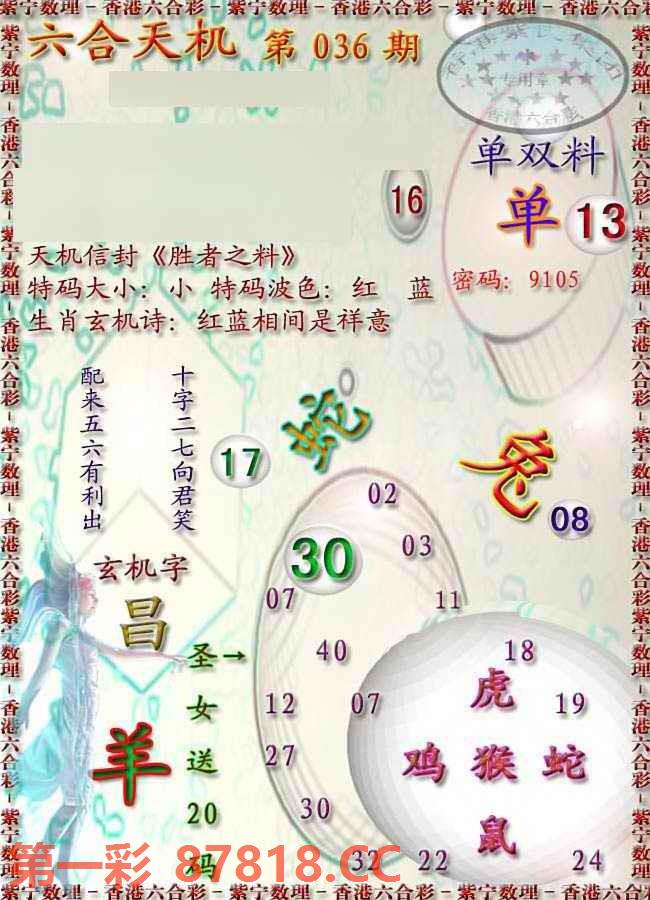 紫宁数理－香港六合彩－紫宁数理－香港六合彩－紫宁数理
六合天机 第 036 期
专用章
香港六合彩
单双料
单 13
16
天机信封《胜者之料》
特码大小：小 特码波色：红 蓝
密码：9105
生肖玄机诗：红蓝相间是祥意
十字二七向君笑
配来五六有利出
蛇
17
兔
08
02
30
03
玄机字
昌
07
11
圣→
女
送
20
码
40
18
虎
羊
12
07
19
鸡 猴 蛇
27
30
鼠
32
22
24
第一彩 87818.CC
紫宁数理－香港六合彩－紫宁数理－香港六合彩－紫宁数理